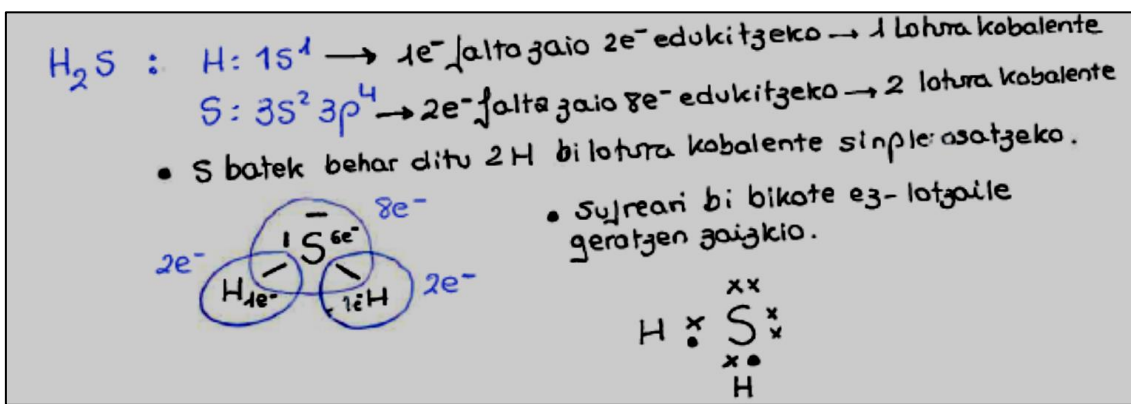 H₂S : H: 1s¹ → 1e⁻ falta zaio 2e⁻ edukitzeko → 1 lotura kobalente
S: 3s² 3p⁴ → 2e⁻ falta zaio 8e⁻ edukitzeko → 2 lotura kobalente
• S batek behar ditu 2 H bi lotura kobalente sinple osatzeko.
• Sufreari bi bikote ez-lotzaile
geratzen zaizkio.
8e⁻
S 6e⁻
2e⁻
H 1e⁻
1e⁻ H
2e⁻
xx
H x• S xx
x•
H